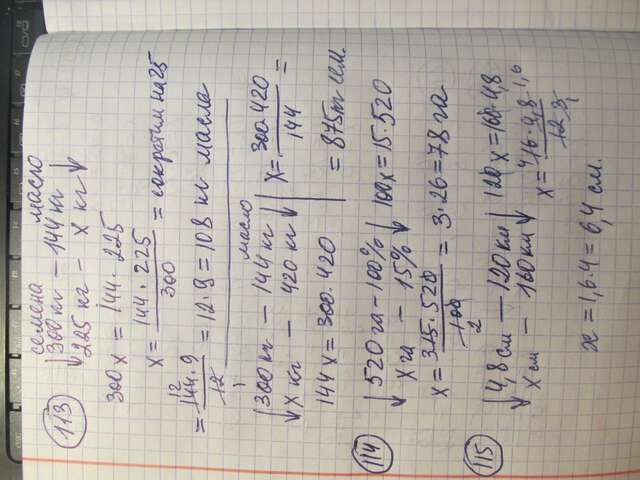 113
семена масло
300 кг – 144 кг
225 кг – х кг
300х = 144·225
х = 144·225/300 = сократим на 25
= 144·9/12 = 12·9 = 108 кг масла
12
масло
300 кг – 144 кг
х кг – 420 кг
х = 300·420/144 =
144х = 300·420
= 875 кг сем.
114
520 га – 100%
х га – 15%
100х = 15·520
х = 315·520/100 = 3·26 = 78 га
2
115
4,8 см – 120 км
х см – 160 км
120х = 160·4,8
х = 16·4,8/12
4 1,6
3
х = 1,6·4 = 6,4 см.